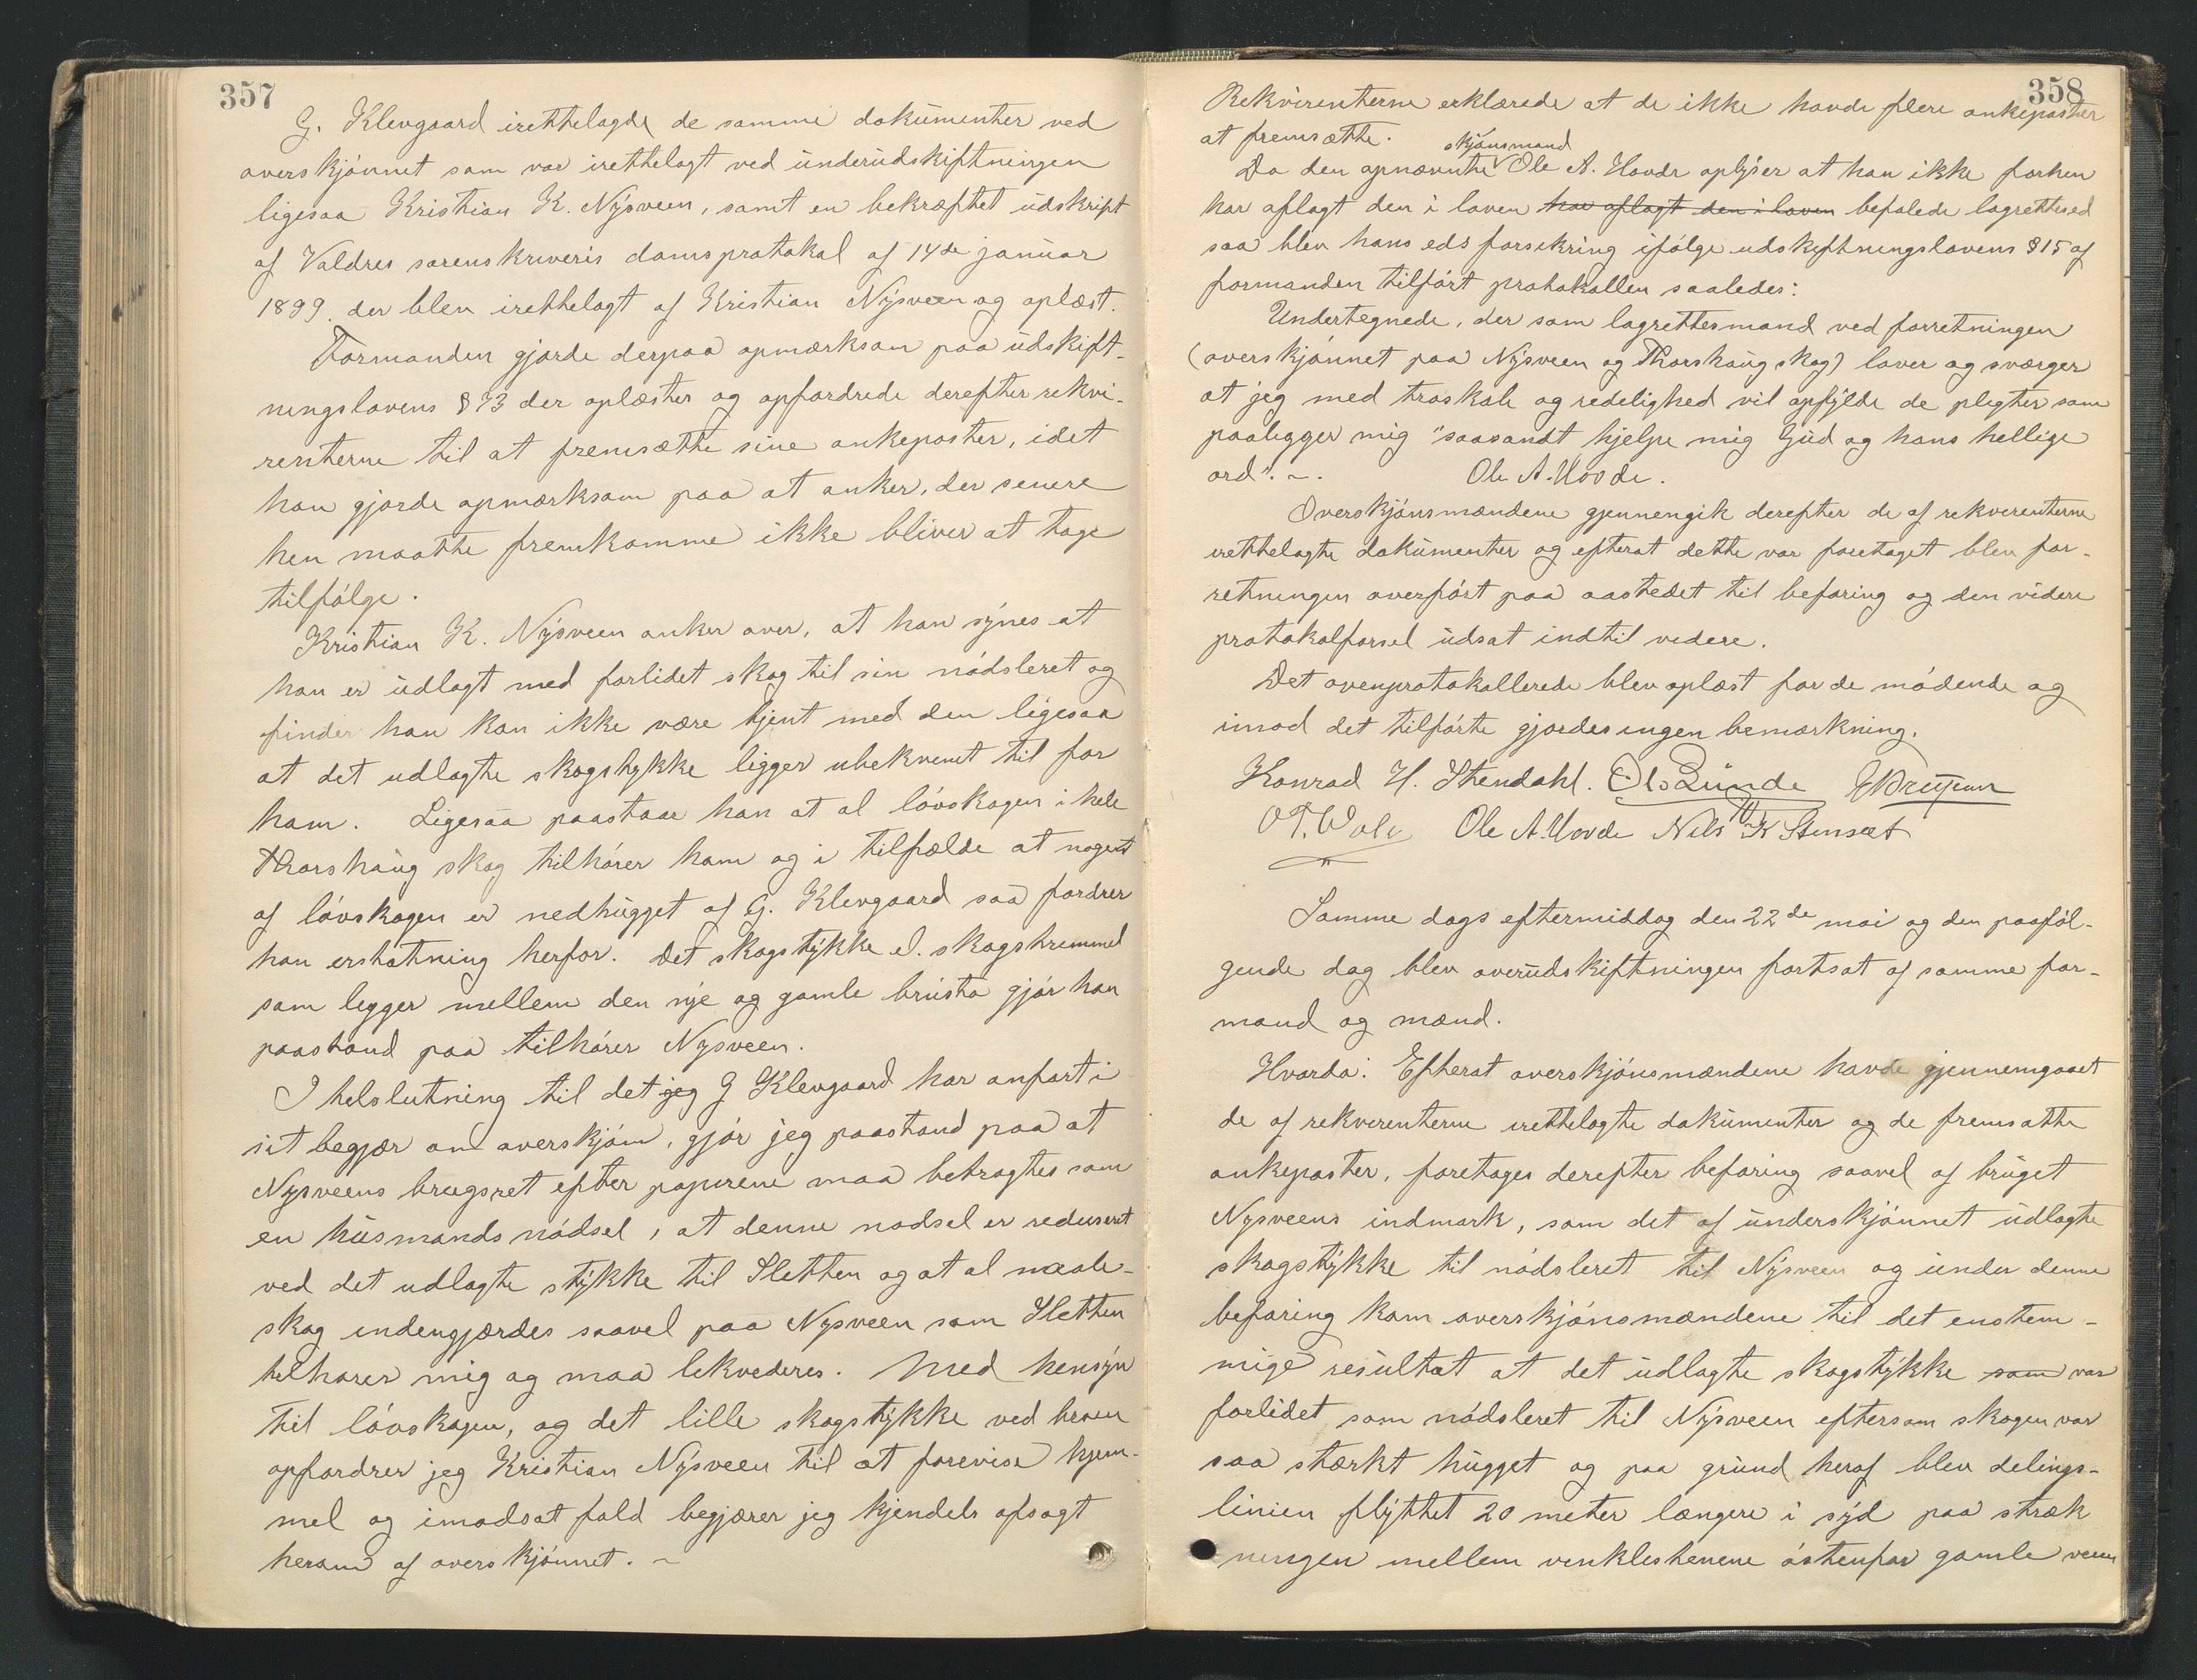 357
G. Klevgaard irettelagde de samme dokumenter ved
overskjønnet som var irettelagt ved underudskiftningen
ligesaa Kristian K. Nysveen, samt en bekræftet udskript
af Valdres sorenskriveris domsprotokol af 14de januar
1899. der blev irettelagt af Kristian Nysveen og oplæst.
Formanden gjorde derpaa opmærksom paa udskift-
ningslovens § 73 der oplæstes og opfordrede derefter rekvi-
renterne til at fremsætte sine ankeposter, idet
han gjorde opmærksom paa at anker, der senere
hen maatte fremkomme ikke bliver at tage
tilfølge.
Kristian K. Nysveen anker over, at han synes at
han er udlagt med forlidet skog til sin nødsleret og
finder han kan ikke være tjent med den ligesaa
at det udlagte skogstykke ligger ubekvemt til for
ham. Ligesaa paastaar han at al løvskogen i hele
Thorshaug skog tilhører ham og i tilfælde at noget
af løvskogen er nedhugget af G. Klevgaard saa fordrer
han erstatning herfor. Det skogstykke el. skogstremmel
som legger mellem den nye og gamle brusta gjør han
paastand paa tilhører Nysveen.
I tilslutning til det jeg G Klevgaard har anført i
sit begjær om overskjøn, gjør jeg paastand paa at
Nysveens brugsret efter papirene maa betragtes som
en husmands nødsel, at denne nødsel er reduseret
ved det udlagte stykke til Sletten og at al naale-
skog indengjærdes saavel paa Nysveen som Sletten
tilhører mig og maa lekvederes. Med hensyn
til løvskogen, og det lille skogstykke ved broen
opfordrer jeg Kristian Nysveen til at forevise hjem-
mel og imodsat fald begjærer jeg kjendels afsagt
herom af overskjønnet. ~
358
Rekvirenterne erklærede at de ikke havde flere ankeposter
at fremsætte.
skjønsmand
Da den opnævnte Ole A. Hovde oplyser at han ikke forhen
har aflagt den i loven har aflagt den i loven befalede lagrettesed
saa blev hans eds forsikring ifølge udskiftningslovens § 15 af
formanden tilført protokollen saaledes:
Undertegnede, der som lagrettesmand ved forretningen
(overskjønnet paa Nysveen og Thorshaug skog) lover og sværger
at jeg med troskab og redelighed vil opfylde de pligter som
paaligger mig "saasandt hjelpe mig Gud og hans hellige
ord". ~. Ole A. Hovde.
Overskjønsmændene gjennengik derefter de af rekvirenterne
irettelagte dokumenter og efterat dette var foretaget blev for-
retningen overført paa aastedet til befaring og den videre
protokolførsel udsat indtil videre.
Det ovenprotokollerede blev oplæst for de mødende og
imod det tilførte gjordes ingen bemærkning.
Konrad H. Stendahl. Ols Lunde
Ole A. Hovde Nils K Stensæt
Samme dags eftermiddag den 22de mai og den paaføl-
gende dag blev overudskiftningen fortsat af samme for-
mand og mænd.
Hvorda: Efterat overskjønsmændene havde gjennemgaaet
de af rekvirenterne irettelagte dokumenter og de fremsatte
ankeposter, foretages derefter befaring saavel af bruget
Nysveens indmark, som det af underskjønnet udlagte
skogstykke til nødsleret til Nysveen og under denne
befaring kom overskjønsmændene til det enstem-
mige resultat at det udlagte skogstykke som var
forlidet som nødsleret til Nysveen eftersom skogen var
saa stærkt hugget og paa grund heraf blev delings-
linien flyttet 20 meter længere i syd paa stræk
ningen mellem vinklestenene østenfor gamle veien